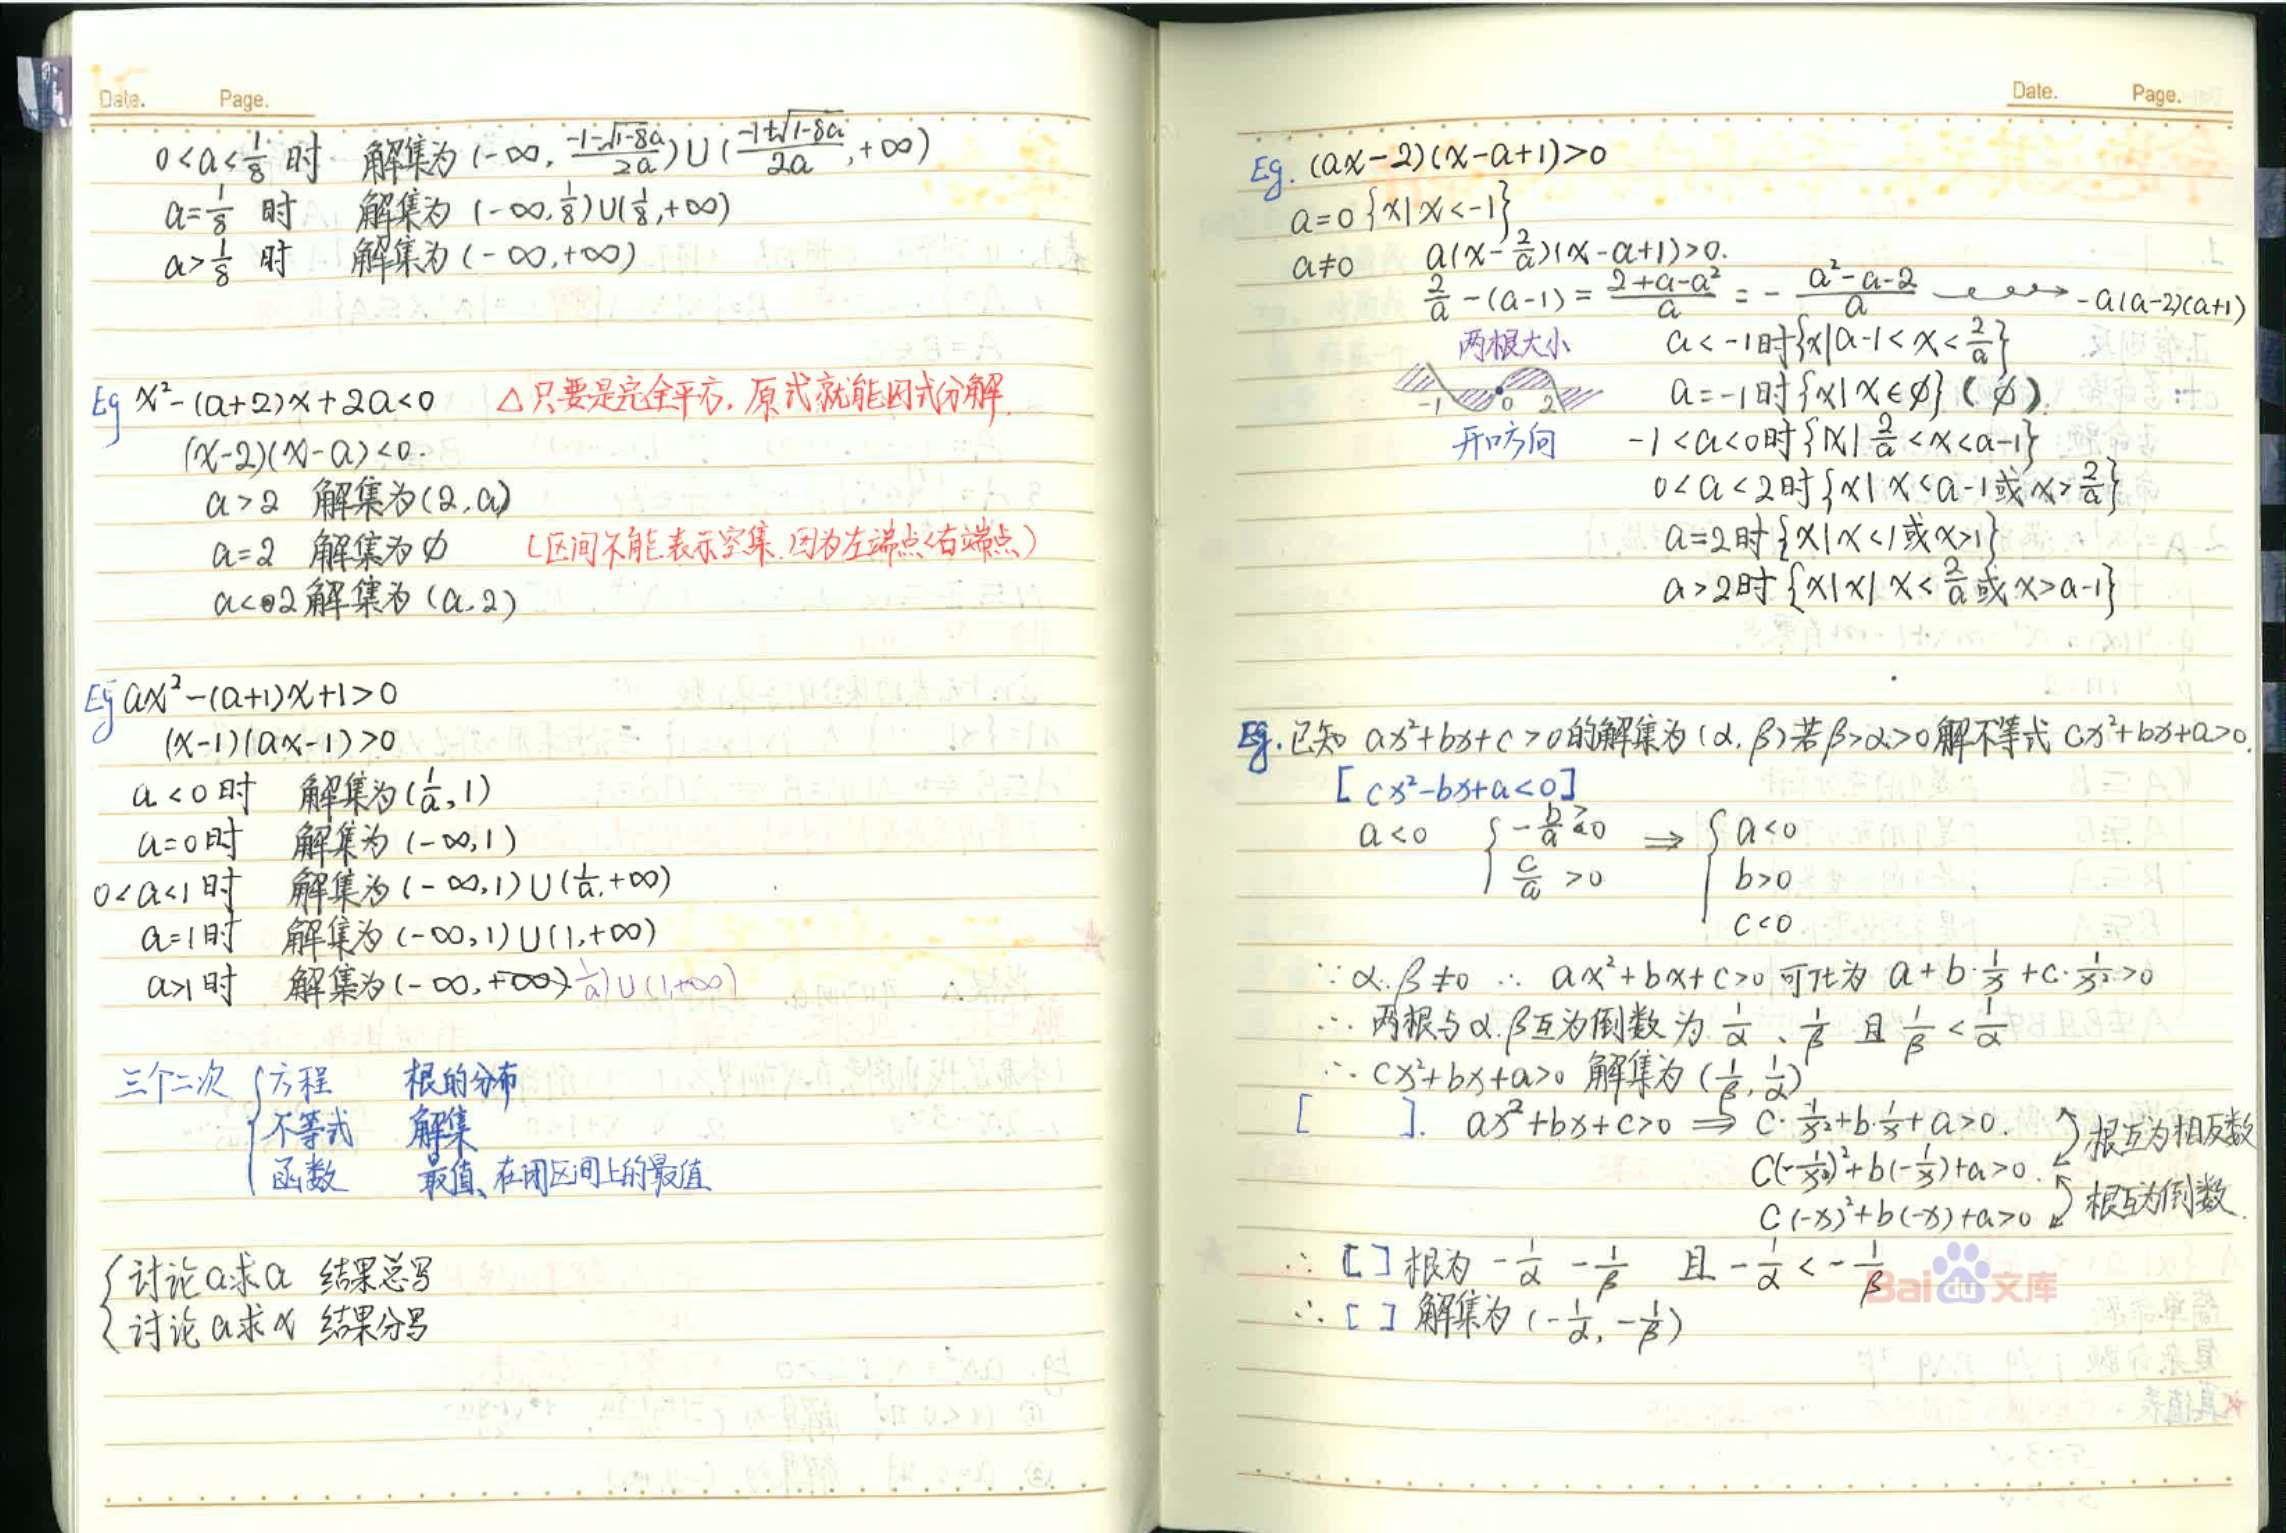 Date. Page.
0<a<1/8 时 解集为 (-∞, (-1-√(1-8a))/2a)∪((-1+√(1-8a))/2a, +∞)
a=1/8 时 解集为 (-∞, 1/8)∪(1/8, +∞)
a>1/8 时 解集为 (-∞,+∞)
Eg x²-(a+2)x+2a<0 △只要是完全平方, 原式就能因式分解.
(x-2)(x-a)<0.
a>2 解集为(2,a)
a=2 解集为∅ (区间不能表示空集.因为左端点<右端点)
a<2 解集为 (a,2)
Eg ax²-(a+1)x+1>0
(x-1)(ax-1)>0
a<0时 解集为(1/a,1)
a=0时 解集为 (-∞,1)
0<a<1时 解集为(-∞,1)∪(1/a,+∞)
a=1时 解集为(-∞,1)∪(1,+∞)
a>1时 解集为(-∞,+∞) 1/a)∪(1,+∞)
三个二次 { 方程 根的分布
不等式 解集
函数 最值、在闭区间上的最值
{ 讨论a求a 结果总写
讨论a求x 结果分写
Date. Page.
Eg. (ax-2)(x-a+1)>0
a=0 {x|x<-1}
a≠0 a(x-2/a)(x-a+1)>0.
2/a-(a-1)=(2+a-a²)/a=-(a²-a-2)/a → -a(a-2)(a+1)
两根大小 a<-1时{x|a-1<x<2/a}
-1 0 2 a=-1时{x|x∈∅} (∅)
开口方向 -1<a<0时{x|2/a<x<a-1}
0<a<2时{x|x<a-1或x>2/a}
a=2时{x|x<1或x>1}
a>2时{x|x|x<2/a或x>a-1}
Eg. 已知 ax²+bx+c>0的解集为(α,β)若β>α>0解不等式 cx²+bx+a>0.
[cx²-bx+a<0]
a<0 { -b/a>0 ⇒ { a<0
c/a >0 b>0
c<0
∵α.β≠0 ∴ ax²+bx+c>0可化为 a+b·1/x+c·1/x²>0
∴ 两根与α.β互为倒数为 1/α、1/β 且 1/β<1/α
∴ cx²+bx+a>0 解集为 (1/β,1/α)
[ ]. ax²+bx+c>0 ⇒ c·1/x²+b·1/x+a>0. 根互为相反数
C(-1/x)²+b(-1/x)+a>0.
C(-x)²+b(-x)+a>0 根互为倒数.
∴ [ ]根为 -1/α -1/β 且 -1/α<-1/β
∴ [ ] 解集为 (-1/α, -1/β)
Bai du 文库